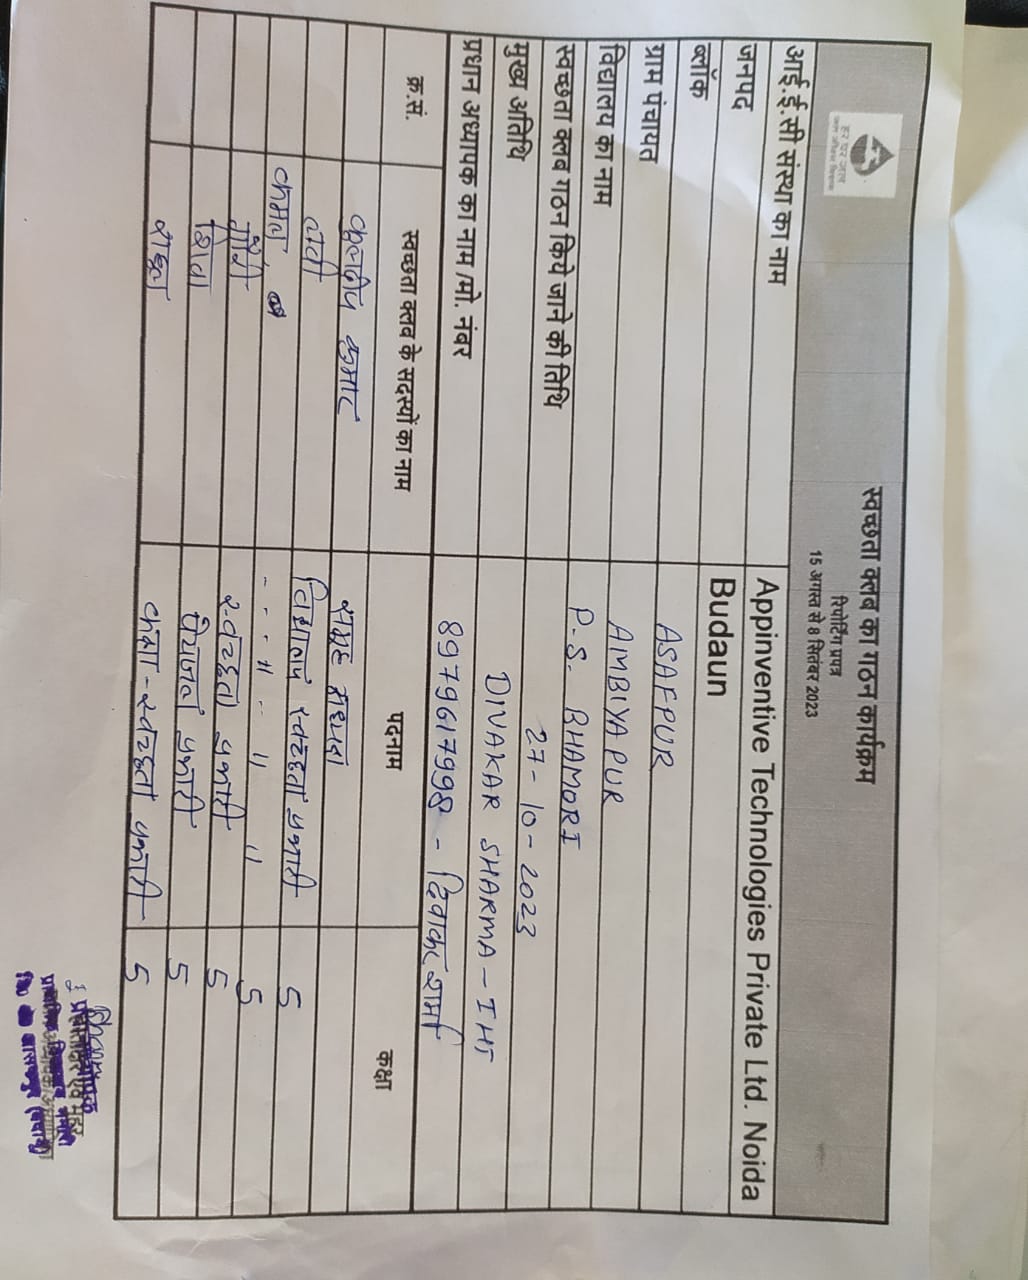 हर घर जल
जल जीवन मिशन
स्वच्छता क्लब का गठन कार्यक्रम
रिपोर्टिंग प्रपत्र
15 अगस्त से 8 सितंबर 2023
आई.ई.सी संस्था का नाम Appinventive Technologies Private Ltd. Noida
जनपद Budaun
ब्लॉक ASAFPUR
ग्राम पंचायत AMBIYAPUR
विद्यालय का नाम P.S. BHAMORI
स्वच्छता क्लब गठन किये जाने की तिथि 27-10-2023
मुख्य अतिथि DIVAKAR SHARMA-IHT
प्रधान अध्यापक का नाम /मो. नंबर 8979617998 - दिवाकर शर्मा
क्र.सं. स्वच्छता क्लब के सदस्यों का नाम पदनाम कक्षा
कुलदीप कुमार
विद्यालय स्वच्छता प्रभारी 5
कमल, " " " 5
गौरी स्वच्छता प्रभारी 5
शिवा पेयजल प्रभारी 5
कक्षा-स्वच्छता प्रभारी 5